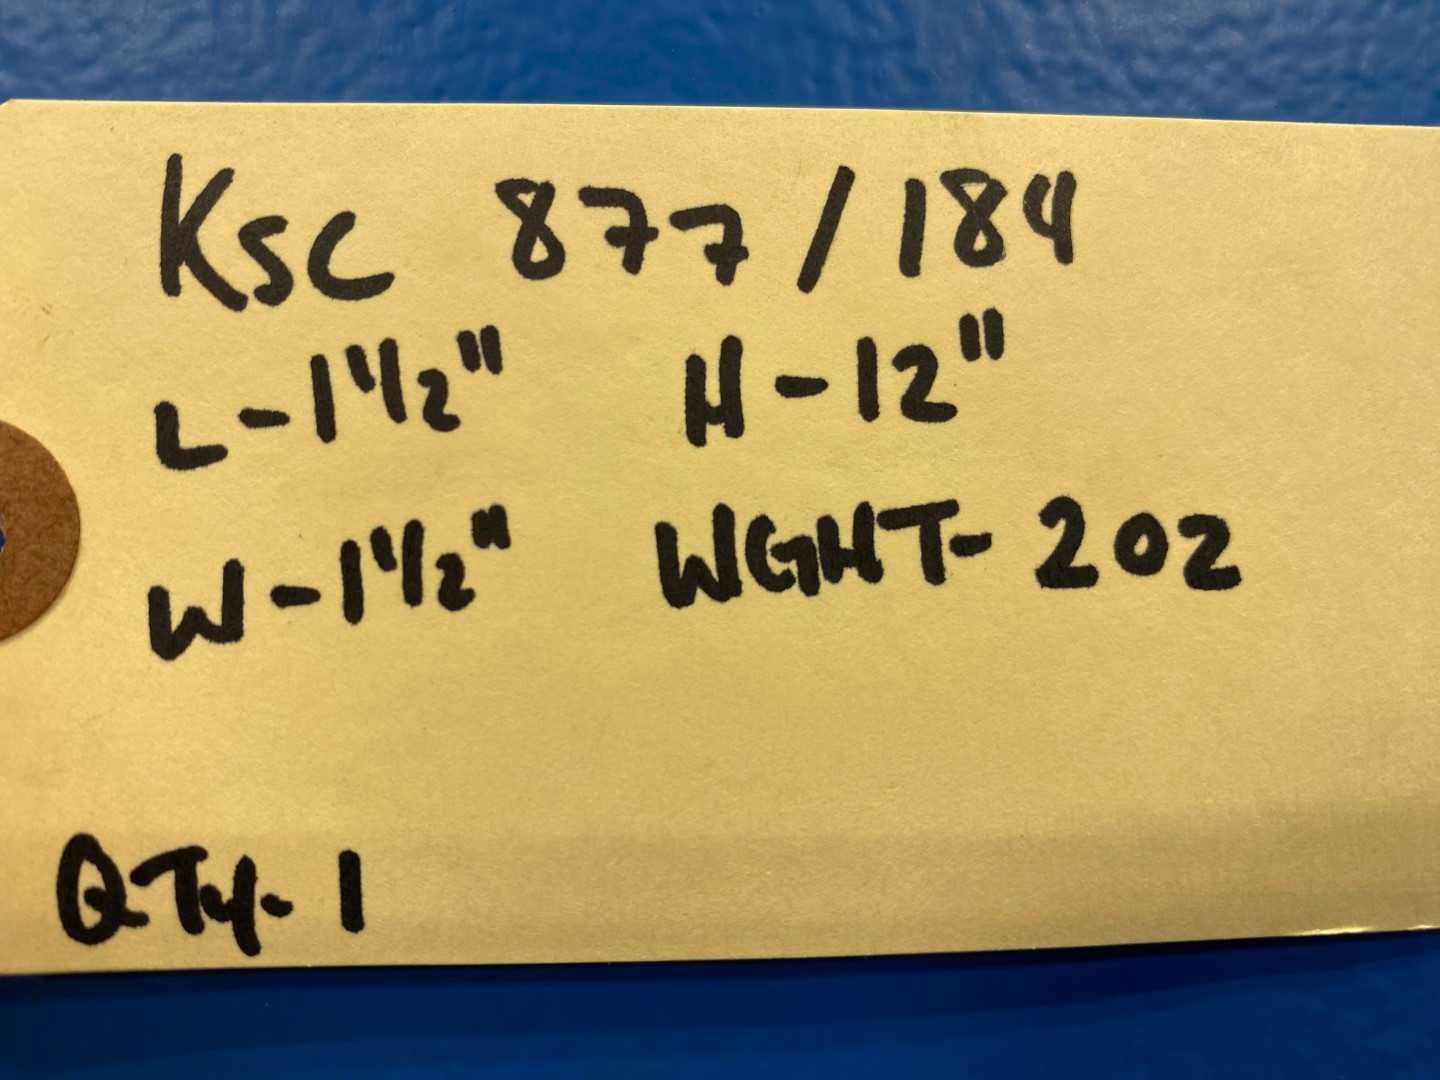 KSC 877/184
L-1 1/2" H-12"
W-1 1/2" WGHT-2OZ
QTY-1